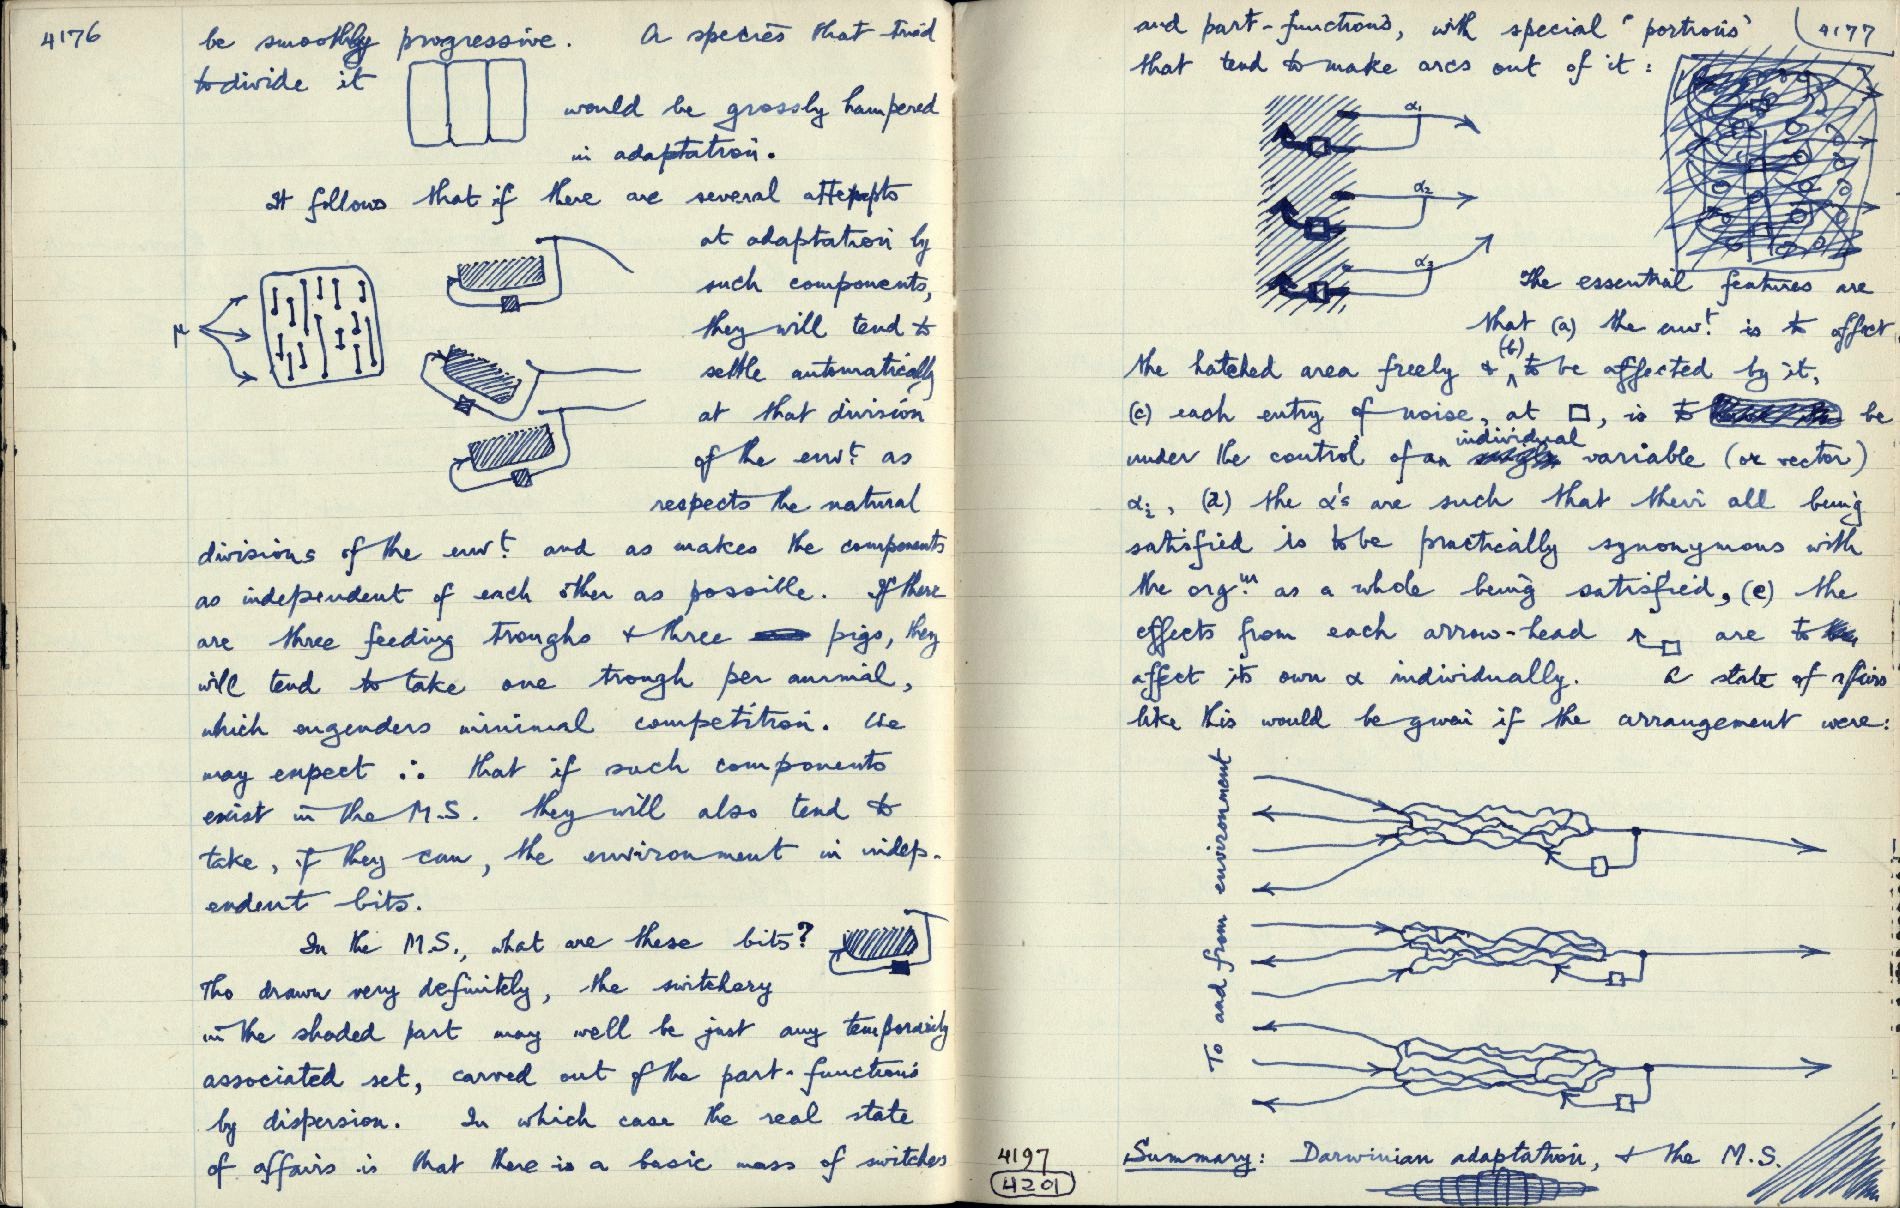 4176
be smoothly progressive. A species that tried
to divide it
would be grossly hampered
in adaptation.
It follows that if there are several attempts
at adaptation by
such components,
they will tend to
settle automatically
at that division
of the envt. as
respects the natural
μ
divisions of the envt. and as makes the components
as independent of each other as possible. If there
are three feeding troughs & three pigs, they
will tend to take one trough per animal,
which engenders minimal competition. We
may expect ∴ that if such components
exist in the M.S. they will also tend to
take, if they can, the environment in indep-
endent bits.
In the M.S., what are these bits?
Tho drawn very definitely, the switchery
in the shaded part may well be just any temporarily
associated set, carved out of the part-functions
by dispersion. In which case the real state
of affairs is that there is a basic mass of switches
4177
and part-functions, with special 'portions'
that tend to make arcs out of it:
α1
α2
α3
The essential features are
that (a) the envt. is to affect
the hatched area freely & (b) to be affected by it,
(c) each entry of noise, at □, is to be
under the control of an individual variable (or vector)
αi, (d) the α's are such that their all being
satisfied is to be practically synonymous with
the orgm. as a whole being satisfied, (e) the
effects from each arrow-head are to
affect its own α individually. A state of affairs
like this would be given if the arrangement were:
To and from environment
4197
4201
Summary: Darwinian adaptation, & the M.S.